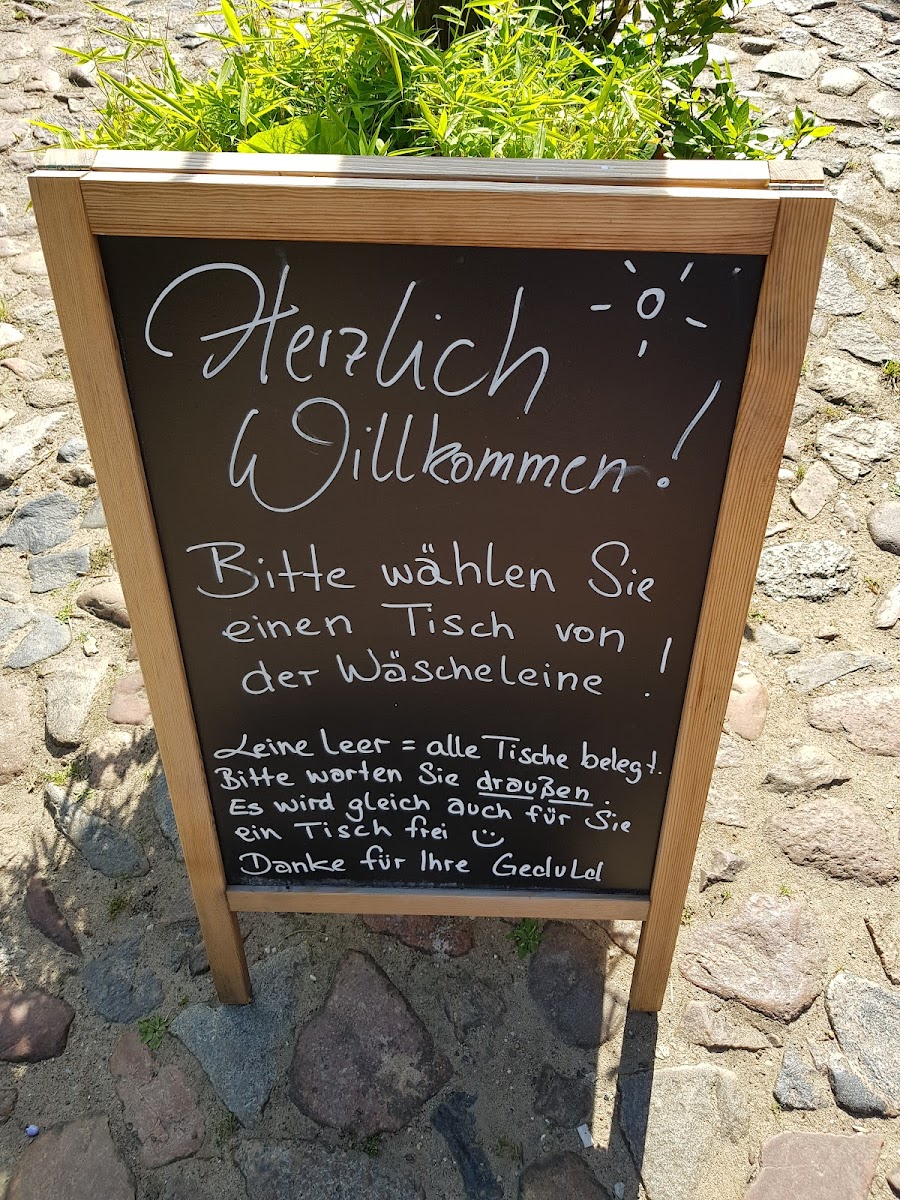 Herzlich
Willkommen!
Bitte wählen Sie
einen Tisch von
der Wäscheleine!
Leine leer = alle Tische belegt.
Bitte warten Sie draußen.
Es wird gleich auch für Sie
ein Tisch frei
Danke für Ihre Geduld